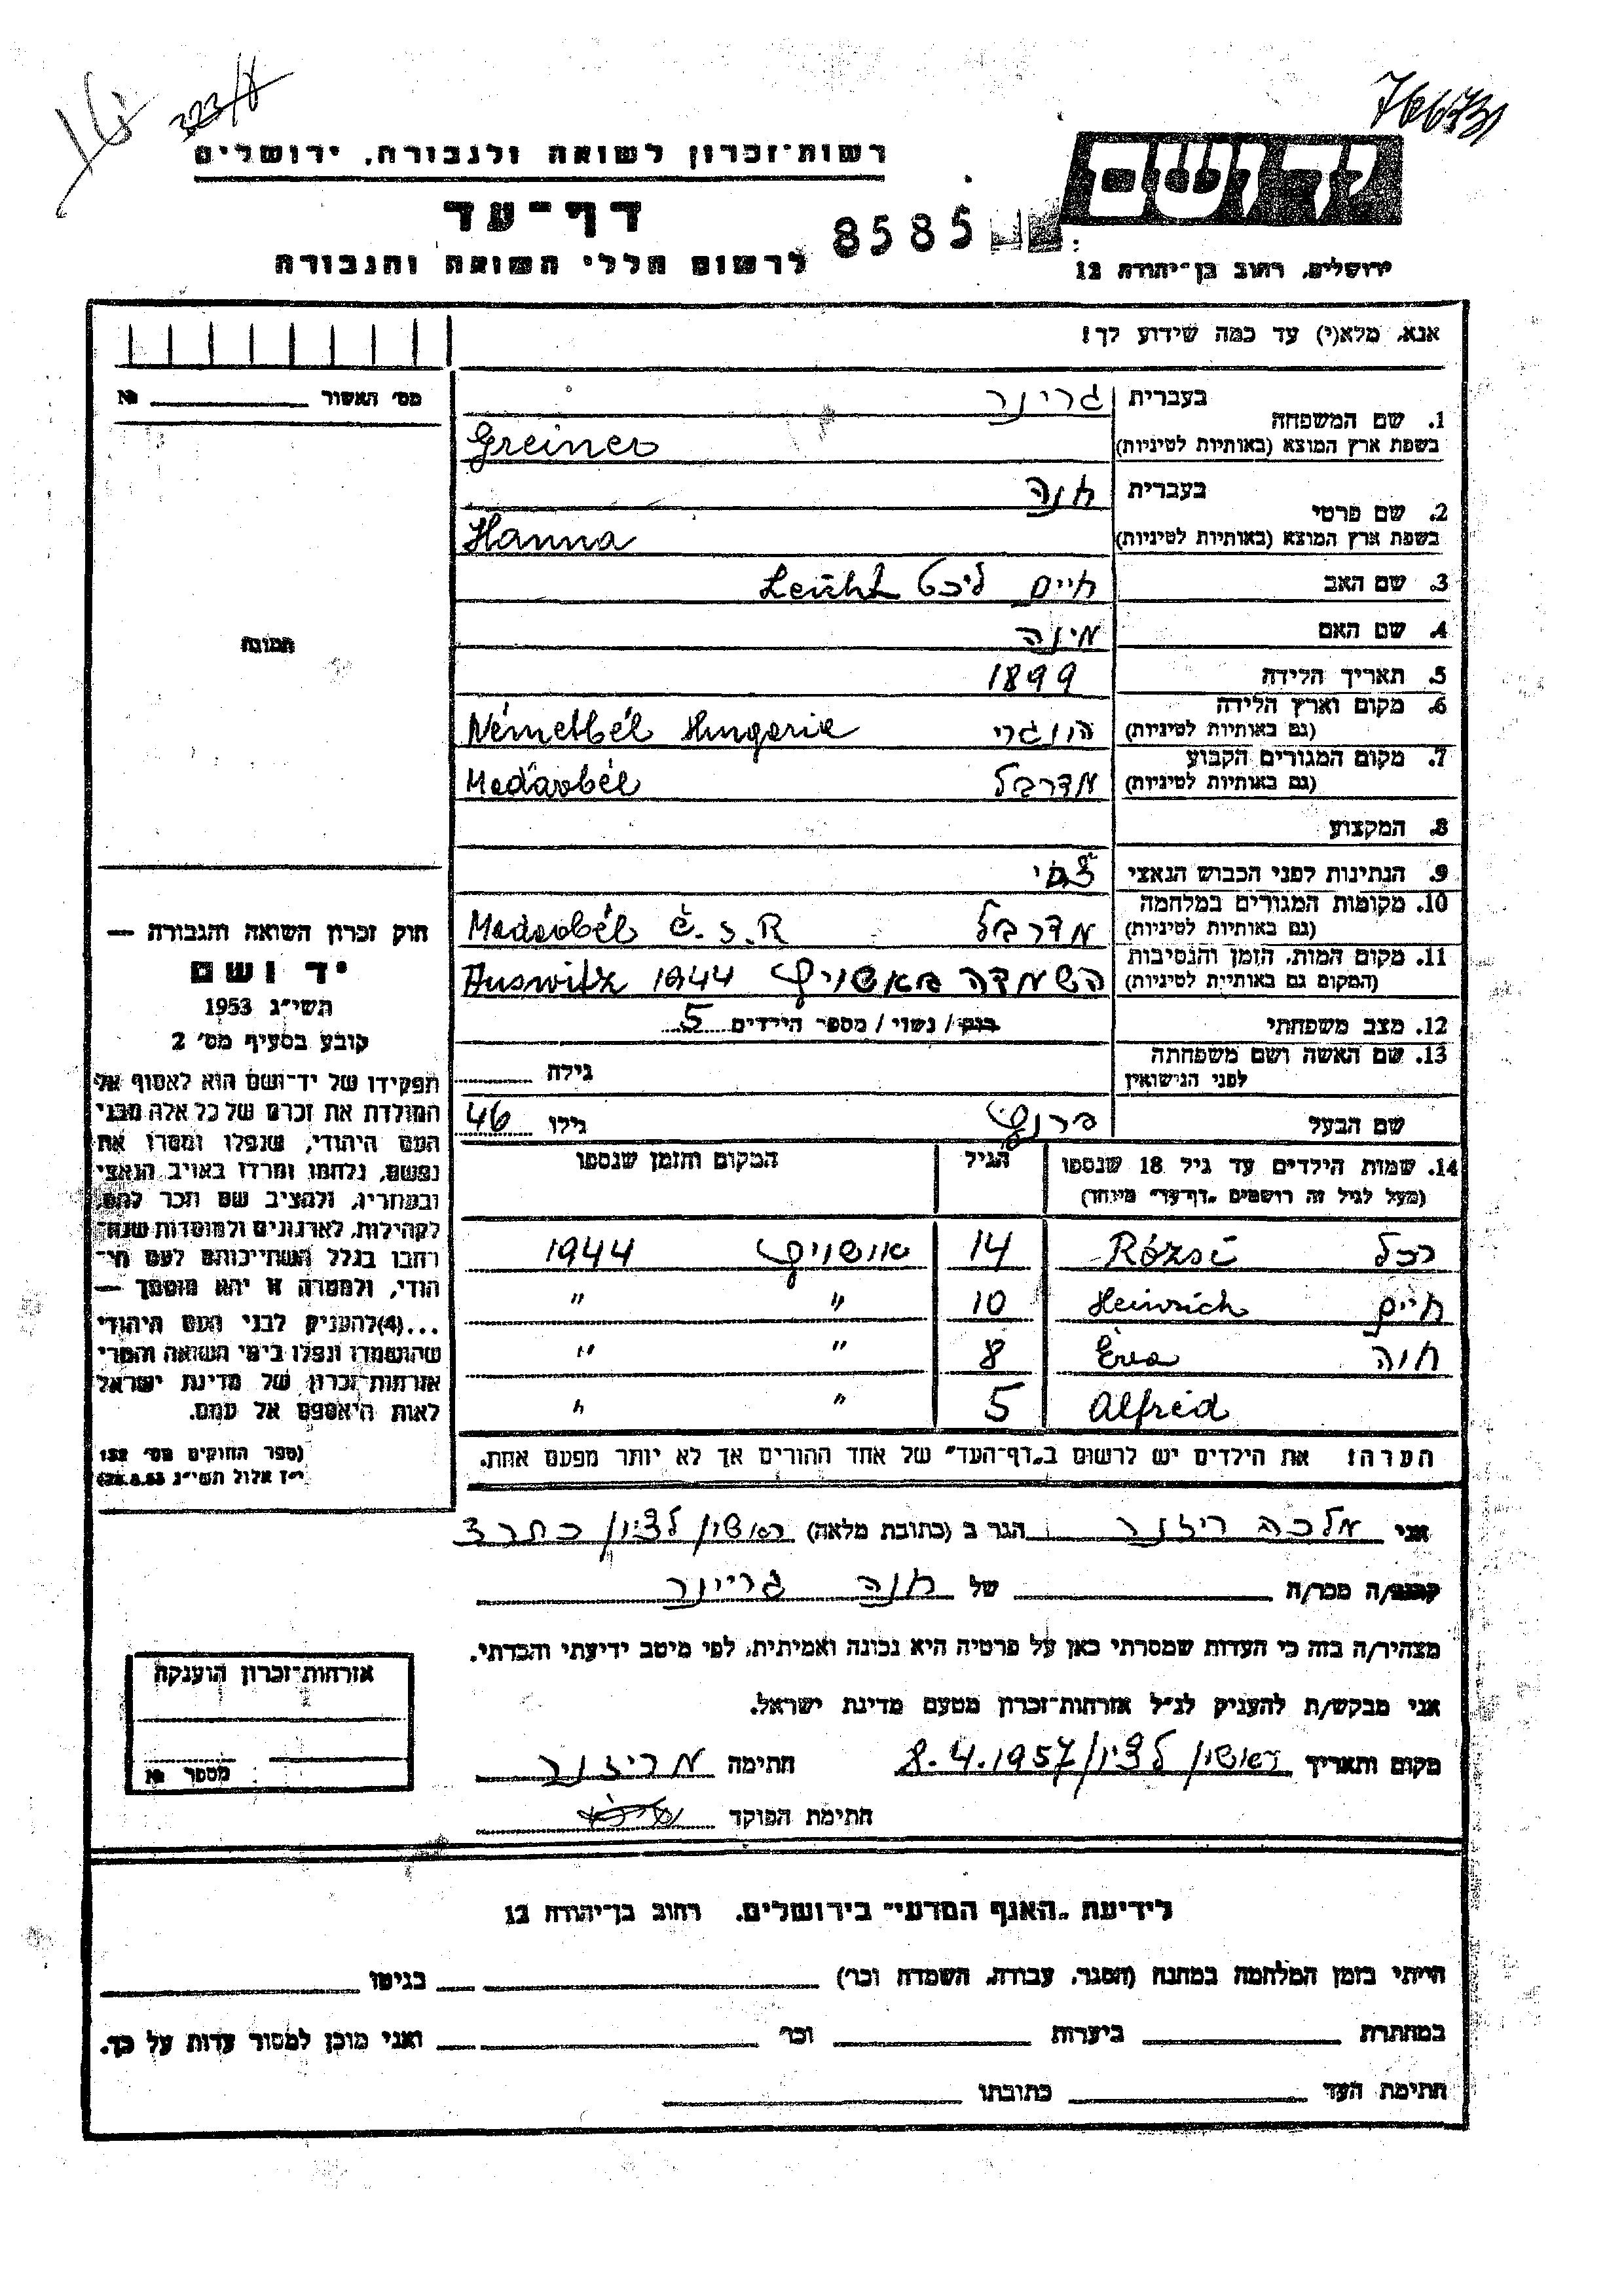 766731
323/8
רשות־זכרון לשואה ולגבורה, ירושלים
יד ושם
דף־עד
8585
לרשום חללי השואה והגבורה
ירושלים, רחוב בן־יהודה 12
אנא, מלא(י) עד כמה שידוע לך!
מס׳ האשור № 
בעברית גריינר
1. שם המשפחה
בשפת ארץ המוצא (באותיות לטיניות) Greiner
בעברית חנה
2. שם פרטי
בשפת ארץ המוצא (באותיות לטיניות) Hanna
3. שם האב חיים ליכט Leicht
4. שם האם מינה
תמונה
5. תאריך הלידה 1899
6. מקום וארץ הלידה
(גם באותיות לטיניות) הונגרי Németbél Hungarie
7. מקום המגורים הקבוע
(גם באותיות לטיניות) מדרבל Medarbél
8. המקצוע
9. הנתינות לפני הכבוש הנאצי צ׳כי
10. מקומות המגורים במלחמה
(גם באותיות לטיניות) מדרבל Medarbél č.s.R
11. מקום המות, הזמן והנסיבות
(המקום גם באותיות לטיניות) השמדה באשויץ Auswitz 1944
12. מצב משפחתי רווק / נשוי / מספר הילדים 5
13. שם האשה ושם משפחתה
לפני הנישואין גילה
שם הבעל פרנץ גילו 46
14. שמות הילדים עד גיל 18 שנספו הגיל המקום והזמן שנספו
(מעל לגיל זה רושמים „דף־עד״ מיוחד)
רחל Rózsi 14 אושויץ 1944
חיים Heinrich 10 ״ ״
חוה Éva 8 ״ ״
Alfréd 5 ״ ״
הערה! את הילדים יש לרשום ב„דף־העד״ של אחד ההורים אך לא יותר מפעם אחת.
חוק זכרון השואה והגבורה —
יד ושם
תשי״ג 1953
קובע בסעיף מס׳ 2
תפקידו של יד־ושם הוא לאסוף אל
המולדת את זכרם של כל אלה מבני
העם היהודי, שנפלו ומסרו את
נפשם, נלחמו ומרדו באויב הנאצי
ובעוזריו, ולהציב שם וזכר להם,
לקהילות, לארגונים ולמוסדות שנח־
רבו בגלל השתייכותם לעם הי־
הודי, ולמטרה זו יהא מוסמך —
...(4)להעניק לבני העם היהודי
שהושמדו ונפלו בימי השואה והמרי
אזרחות־זכרון של מדינת ישראל
לאות היאספם אל עמם.
(ספר החוקים מס׳ 132
י״ז אלול תשי״ג 28.8.53)
אני מלכה ריזנר הגר ב (כתובת מלאה) ראשון לציון
קרוב/ה מכר/ה של חנה גריינר
מצהיר/ה בזה כי העדות שמסרתי כאן על פרטיה היא נכונה ואמיתית, לפי מיטב ידיעתי והכרתי.
אני מבקש/ת להעניק לנ״ל אזרחות־זכרון מטעם מדינת ישראל.
מקום ותאריך ראשון לציון 8.4.1957 חתימה מ ריזנר
חתימת הפוקד
אזרחות־זכרון הוענקה
מספר №
לידיעת „האגף המדעי״ בירושלים, רחוב בן־יהודה 12
הייתי בזמן המלחמה במחנה (הסגר, עבודה, השמדה וכו׳) בגיטו
במחתרת ביערות וכו׳ ואני מוכן למסור עדות על כך.
חתימת העד כתובתו